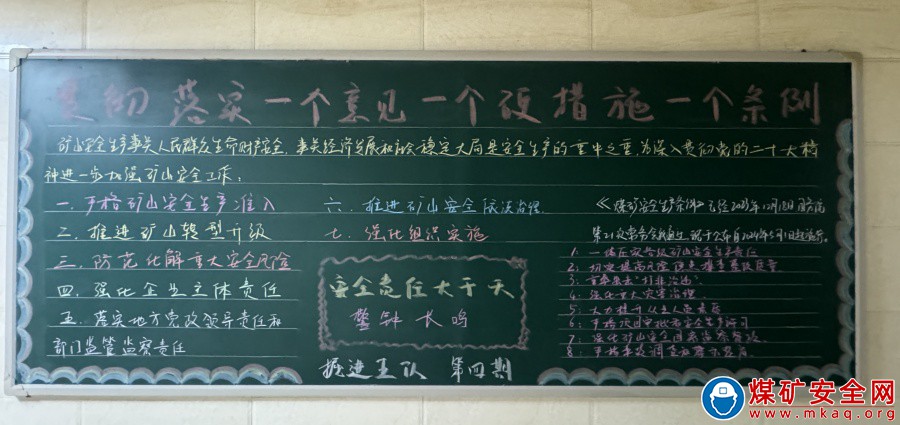 贯彻落实一个意见一个硬措施一个条例
矿山安全生产事关人民群众生命财产安全，事关经济发展和社会稳定大局是安全生产的重中之重，为深入贯彻党的二十大精
神进一步加强矿山安全工作：
一.严格矿山安全生产准入
二.推进矿山转型升级
三.防范化解重大安全风险
四.强化企业主体责任
五.落实地方党政领导责任和
部门监管监察责任
六.推进矿山安全依法治理
七.强化组织实施
安全责任大于天
警钟长鸣
掘进五队 第四期
《煤矿安全生产条例》已经2023年12月18日国务院
第21次常务会议通过 现予公布自2024年5月1日起施行。
1.
2.切实提高风险 排查整改质量
3."打非治违"
4.强化重大灾害治理
5.大力提升从业人员素质
6.严格 安全生产许可
7.强化矿山安全国家监察
8.严格事故调查
煤矿安全网
www.mkaq.org